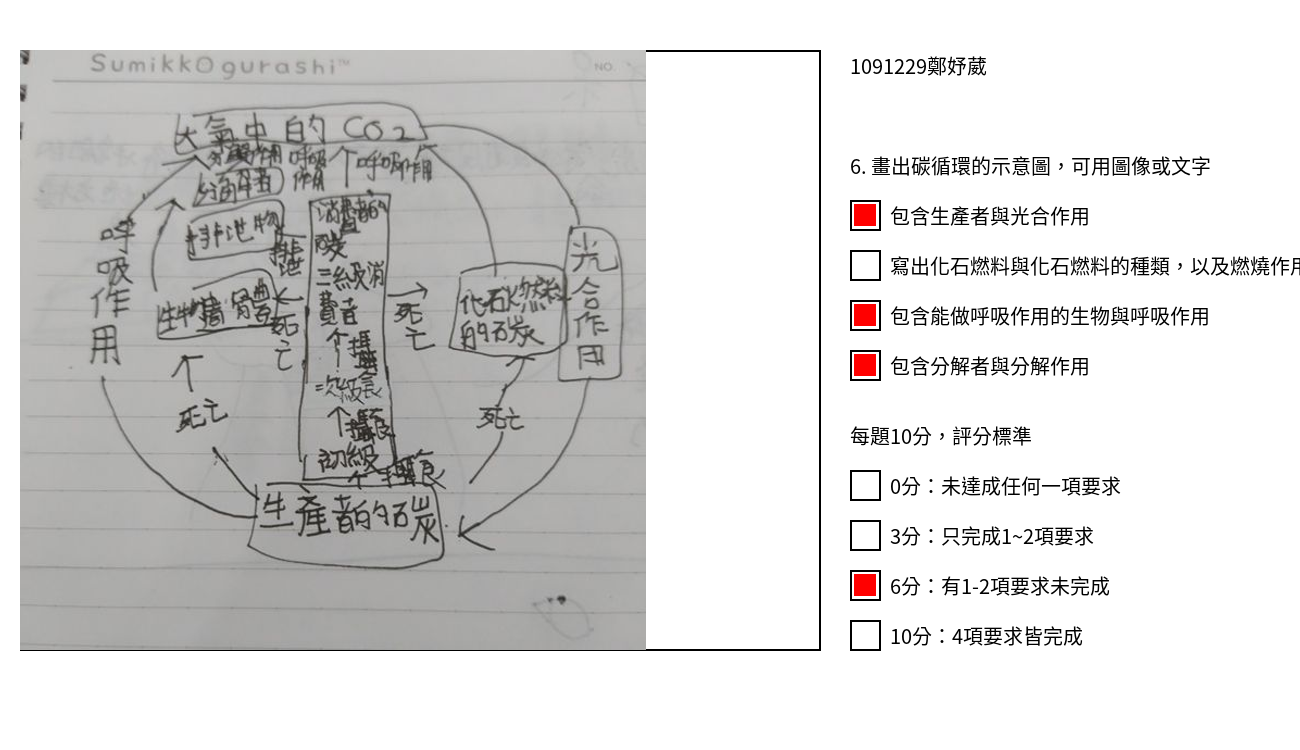 Sumikkogurashi™
NO
大氣中的 CO2
分解作用
呼吸作用
呼吸作用
分解者
排泄物
排泄
生物遺骨豊
死亡
死亡
消費者的碳
三級消費者
攝食
二次級
攝食
初級
攝食
死亡
化石燃料的碳
光合作用
呼吸作用
死亡
生產者的碳
1091229鄭妤葳
6. 畫出碳循環的示意圖，可用圖像或文字
包含生產者與光合作用
寫出化石燃料與化石燃料的種類，以及燃燒作用
包含能做呼吸作用的生物與呼吸作用
包含分解者與分解作用
每題10分，評分標準
0分：未達成任何一項要求
3分：只完成1~2項要求
6分：有1-2項要求未完成
10分：4項要求皆完成